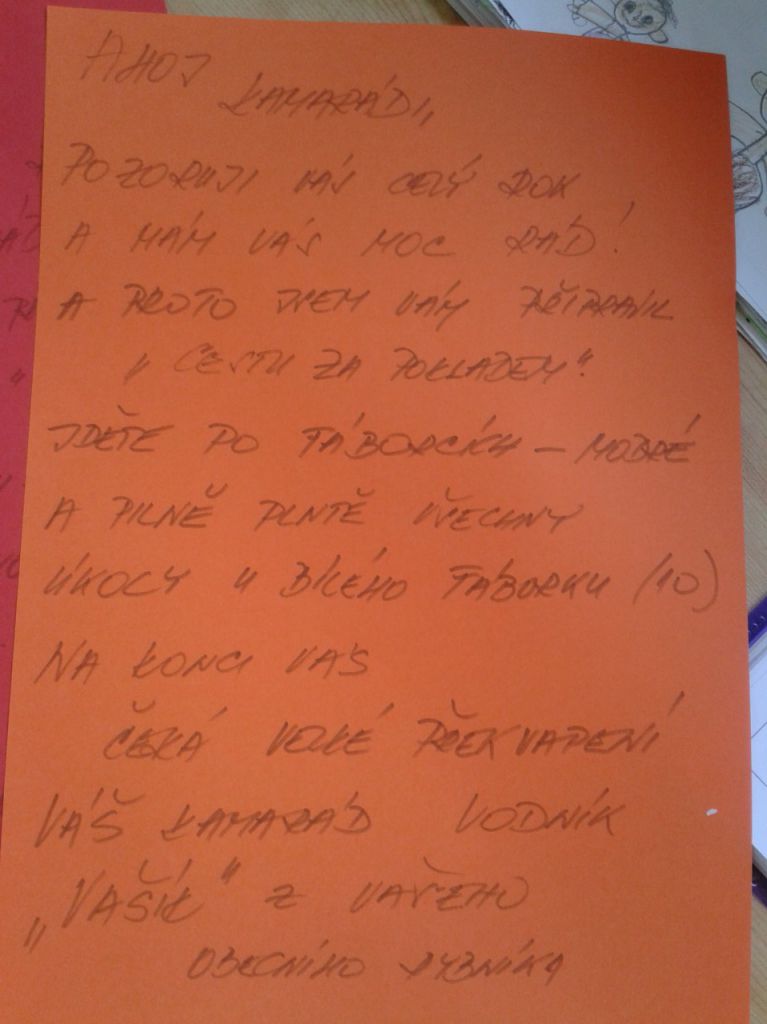 AHOJ
KAMARÁDI,
POZORUJI VÁS CELÝ ROK
A MÁM VÁS MOC RÁD!
A PROTO JSEM VÁM PŘIPRAVIL
„CESTU ZA POKLADEM“.
JDĚTE PO TÁBORCÍCH – MODRÉ
A PILNĚ PLNTĚ VŠECHNY
ÚKOLY U BÍLÉHO TÁBORKU (10)
NA KONCI VÁS
ČEKÁ VELKÉ PŘEKVAPENÍ
VÁŠ KAMARÁD VODNÍK
„VAŠÍK“ Z VAŠEHO
OBECNÍHO RYBNÍKA